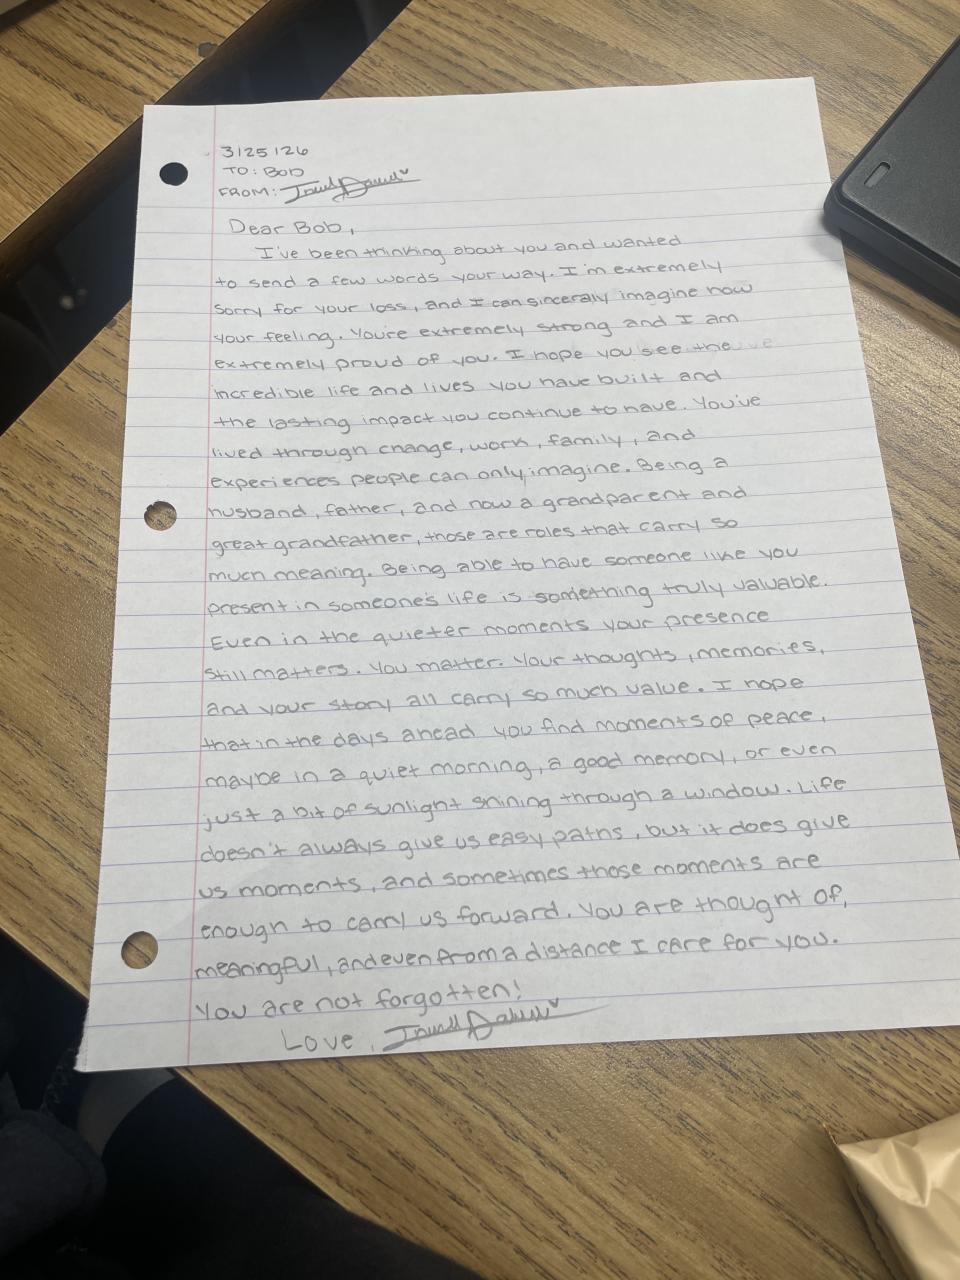 3125126
TO: BOB
FROM:
Dear Bob,
I've been thinking about you and wanted
to send a few words your way. I'm extremely
sorry for your loss, and I can sinceraly imagine how
your feeling. You're extremely strong and I am
extremely proud of you. I hope you see the
incredible life and lives you have built and
the lasting impact you continue to have. You've
lived through change, work, family, and
experiences people can only imagine. Being a
husband, father, and now a grandparent and
great grandfather, those are roles that carry so
much meaning. Being able to have someone like you
present in someone's life is something truly valuable.
Even in the quieter moments your presence
still matters. You matter. Your thoughts, memories,
and your story all carry so much value. I hope
that in the days ahead you find moments of peace,
maybe in a quiet morning, a good memory, or even
just a bit of sunlight shining through a window. Life
doesn't always give us easy paths, but it does give
us moments, and sometimes those moments are
enough to carry us forward. You are thought of,
meaningful, and even from a distance I care for you.
You are not forgotten!
Love,